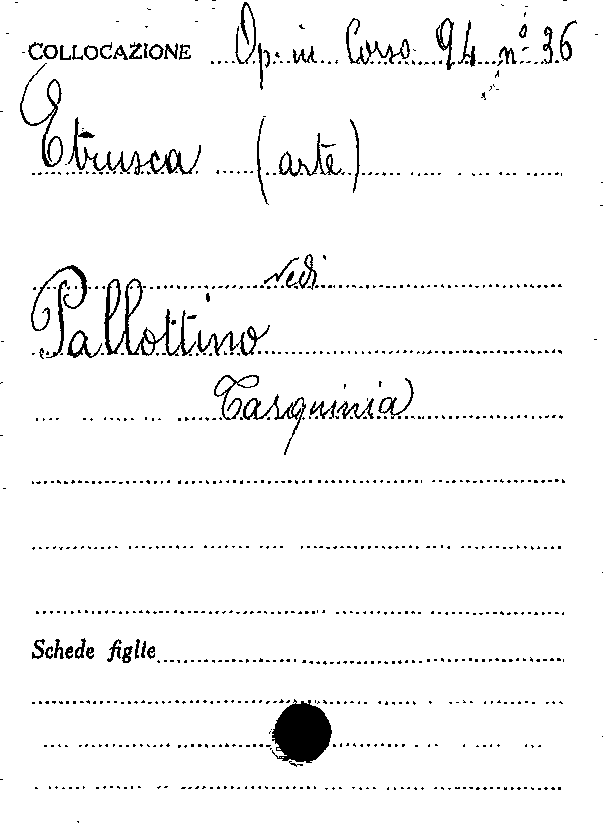 COLLOCAZIONE Op. in Corso 94 n° 36
Etrusca (arte)
vedi
Pallottino
Tarquinia
Schede figlie